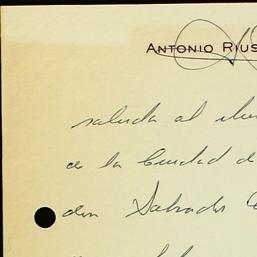 ANTONIO RIUS
saluda al
de la Ciudad d
don Salvador